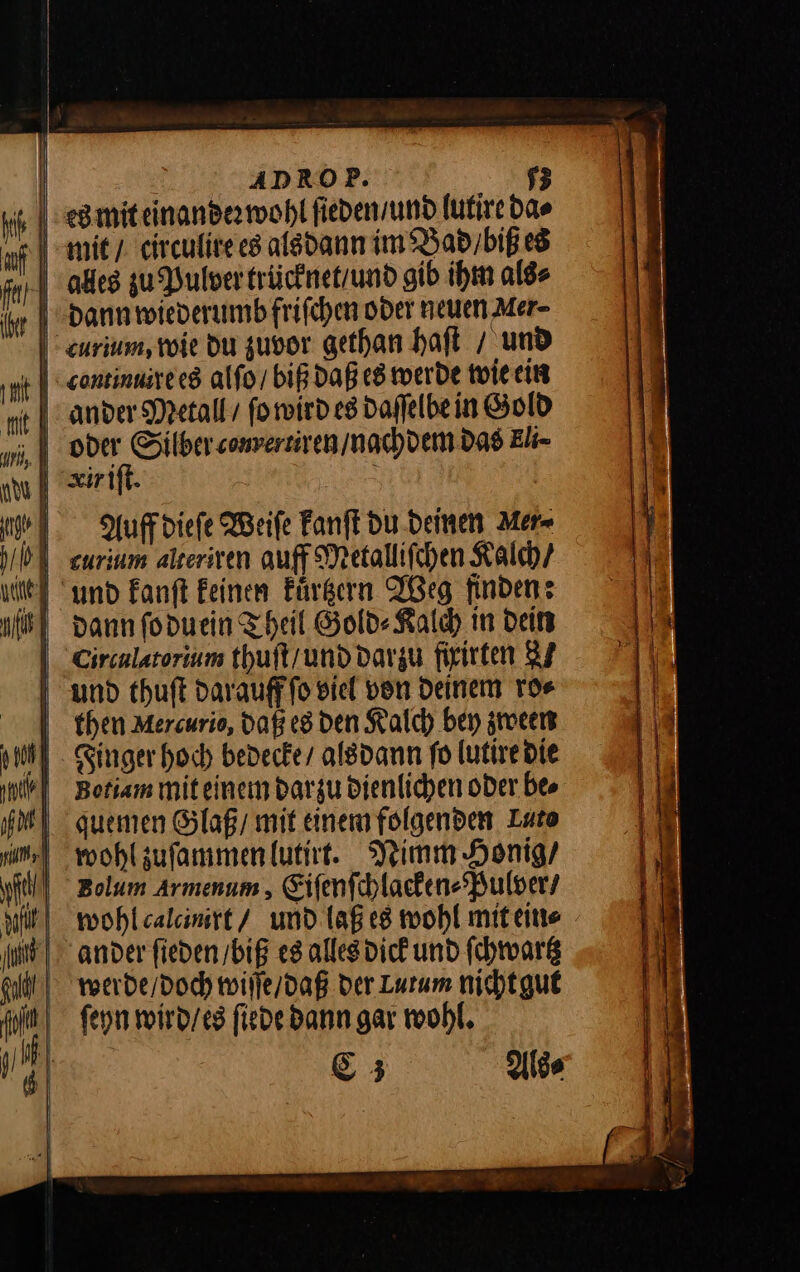 ADROP. 53
es mit einander wohl ſieden/und lutire da⸗
mit / circulire es alsdann im Bad/biß es
alles zu Pulver trücknet/und gib ihm als⸗
dann wiederumb friſchen oder neuen Mer-
curium, wie du zuvor gethan haſt / und
continuire es alſo/ biß daß es werde wie ein
ander Metall / ſo wird es daſſelbe in Gold
oder Silber convertiren/nachdem das Eli-
xir iſt.
Auff dieſe Weiſe kanſt du deinen Mer-
curium alteriren auff Metalliſchen Kalch/
und kanſt keinen kürtzern Weg finden:
dann ſo du ein Theil Gold⸗Kalch in dein
Circulatorium thuſt/und darzu fixirten
und thuſt darauff ſo viel von deinem ro⸗
then Mercurio, daß es den Kalch bey zween
Finger hoch bedecke/ alsdann ſo lutire die
Botiam mit einem darzu dienlichen oder be⸗
quemen Glaß/ mit einem folgenden Luto
wohl zuſammen lutirt. Nimm Honig/
Bolum Armenum, Eiſenſchlacken⸗Pulver/
wohl calcinirt / und laß es wohl mit ein⸗
ander ſieden/biß es alles dick und ſchwartz
werde/doch wiſſe/daß der Lutum nicht gut
ſeyn wird/es ſiede dann gar wohl.
C 3 Als⸗